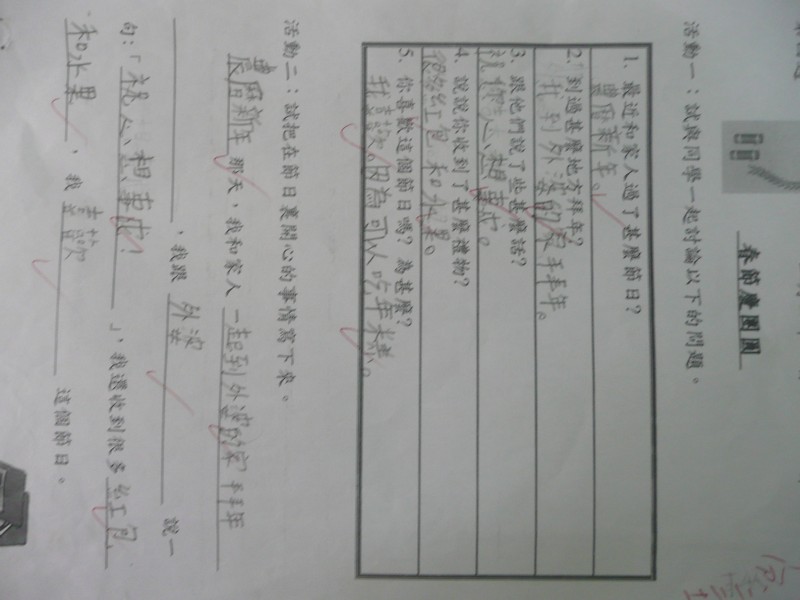 春節慶團圓
活動一：試與同學一起討論以下的問題。
1. 最近和家人過了甚麼節日？
農曆新年。
2. 到過甚麼地方拜年？
我到外婆的家拜年。
3. 跟他們說了些甚麼話？
心想事成。
4. 說說你收到了甚麼禮物？
很多紅包和水果。
5. 你喜歡這個節日嗎？為甚麼？
我喜歡。因為可以吃年糕。
活動二：試把在節日裏開心的事情寫下來。
農曆新年 那天，我和家人 一起到外婆的家拜年
，我跟 外婆 說一
句：「祝您心想事成！」，我還收到很多 紅包、
和水果，我 喜歡 這個節日。